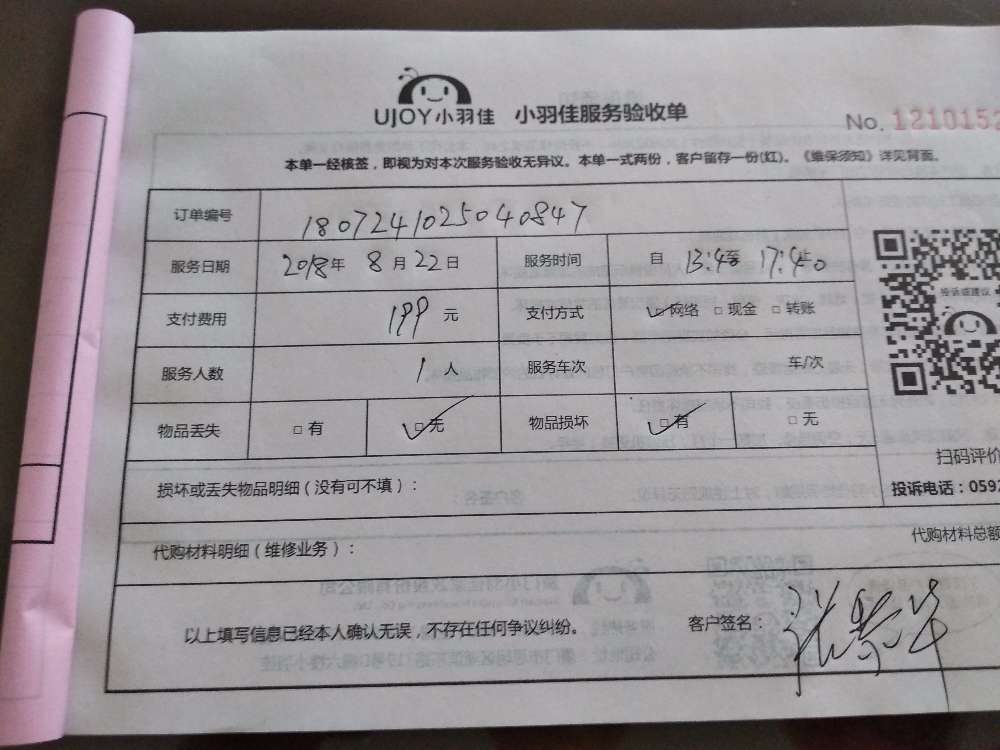 UJOY小羽佳 小羽佳服务验收单
No. 1210152
本单一经核签，即视为对本次服务验收无异议。本单一式两份，客户留存一份(红)。《维保须知》详见背面。
订单编号 1807241025040847
服务日期 2018年 8月22日 服务时间 自 13:40至 17:40止
支付费用 199 元 支付方式 ☑网络 □现金 □转账
服务人数 1人 服务车次 车/次
物品丢失 □有 ☑无 物品损坏 ☑有 □无
投诉或建议
扫码评价
投诉电话：059
损坏或丢失物品明细（没有可不填）：
代购材料明细（维修业务）： 代购材料总额
以上填写信息已经本人确认无误，不存在任何争议纠纷。 客户签名：